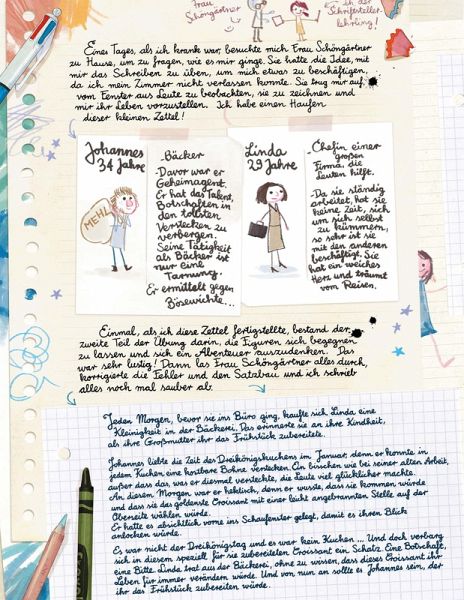 Frau
Schöngärtner
in der
Schriftsteller-
lehrling!
Eines Tages, als ich krank war, besuchte mich Frau Schöngärtner
zu Hause, um zu fragen, wie es mir ginge. Sie hatte die Idee, mit
mir das Schreiben zu üben, um mich etwas zu beschäftigen,
da ich mein Zimmer nicht verlassen konnte. Sie trug mir auf,
vom Fenster aus Leute zu beobachten, sie zu zeichnen und
mir ihr Leben vorzustellen. Ich habe einen Haufen
dieser kleinen Zettel!
Johannes
34 Jahre
MEHL
-Bäcker
-Davor war er
Geheimagent.
Er hat das Talent,
Botschaften in
den tollsten
Verstecken zu
verbergen.
Seine Tätigkeit
als Bäcker ist
nur eine
Tarnung.
Er ermittelt gegen
Bösewichte...
Linda
29 Jahre
-Chefin einer
großen
Firma, die
Leuten hilft.
-Da sie ständig
arbeitet, hat sie
keine Zeit, sich
um sich selbst
zu kümmern,
so sehr ist sie
mit den anderen
beschäftigt. Sie
hat ein weiches
Herz und träumt
vom Reisen.
Einmal, als ich diese Zettel fertigstellte, bestand der
zweite Teil der Übung darin, die Figuren sich begegnen
zu lassen und sich ein Abenteuer auszudenken. Das
war sehr lustig! Dann las Frau Schöngärtner alles durch,
korrigierte die Fehler und den Satzbau und ich schrieb
alles noch mal sauber ab.
Jeden Morgen, bevor sie ins Büro ging, kaufte sich Linda eine
Kleinigkeit in der Bäckerei. Das erinnerte sie an ihre Kindheit,
als ihre Großmutter ihr das Frühstück zubereitete.
Johannes liebte die Zeit des Dreikönigskuchens im Januar, denn er konnte in
jedem Kuchen eine kostbare Bohne verstecken. Ein bisschen wie bei seiner alten Arbeit,
außer dass das, was er diesmal versteckte, die Leute viel glücklicher machte.
An diesem Morgen war er hektisch, denn er wusste, dass sie kommen würde
und dass sie das goldenste Croissant mit einer leicht angebrannten Stelle auf der
Oberseite wählen würde.
Er hatte es absichtlich vorne ins Schaufenster gelegt, damit es ihren Blick
anlocken würde.
Es war nicht der Dreikönigstag und es war kein Kuchen... Und doch verbarg
sich in diesem speziell für sie zubereiteten Croissant ein Schatz. Eine Botschaft,
eine Bitte. Linda trat aus der Bäckerei, ohne zu wissen, dass dieses Croissant ihr
Leben für immer verändern würde. Und von nun an sollte es Johannes sein, der
ihr das Frühstück zubereiten würde.